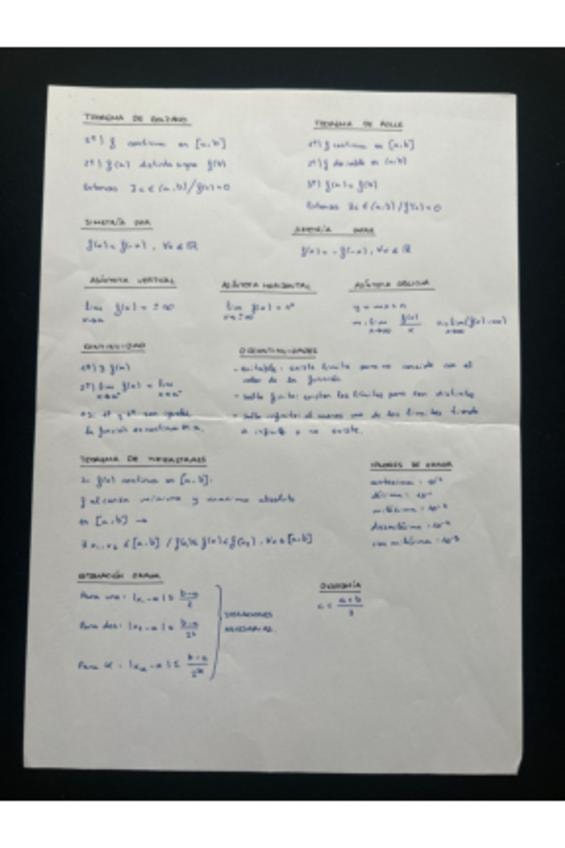 TEOREMA DE BOLZANO
1º) f continua en [a,b]
2º) f(a) distinto signo f(b)
Entonces ∃c ∈ (a,b) / f(c) = 0
TEOREMA DE ROLLE
1º) f continua en [a,b]
2º) f derivable en (a,b)
3º) f(a) = f(b)
Entonces ∃c ∈ (a,b) / f'(c) = 0
SIMETRÍA PAR
f(x) = f(-x), ∀x ∈ ℝ
SIMETRÍA IMPAR
f(x) = -f(-x), ∀x ∈ ℝ
ASÍNTOTA VERTICAL
lim f(x) = ±∞
ASÍNTOTA HORIZONTAL
lim f(x) =
x→±∞
ASÍNTOTA OBLICUA
y = mx + n
m = lim f(x)/x n = lim (f(x) - mx)
x→∞ x→∞
CONTINUIDAD
1º) ∃ f(a)
2º) lim f(x) = lim
si 1º y 2º son iguales
la función es continua
DISCONTINUIDADES
- evitable: existe límite pero no coincide con el
valor de la función
- salto finito: existen los límites pero son distintos
- salto infinito: al menos uno de los límites tiende
a infinito o no existe.
TEOREMA DE WEIERSTRASS
Si f(x) continua en [a,b]:
f alcanza mínimo y máximo absoluto
en [a,b] →
∃ x₁, x₂ ∈ [a,b] / f(x₁) ≤ f(x) ≤ f(x₂), ∀x ∈ [a,b]
VALORES DE ERROR
centésima =
décima =
milésima =
diezmilésima =
cienmilésima =
ESTIMACIÓN ERROR
Para una: |x₁ - α| ≤ b-a/2
Para dos: |x₂ - α| ≤ b-a/2²
Para k: |xₖ - α| ≤ b-a/2ᵏ
NECESARIAS.
c = a+b/2